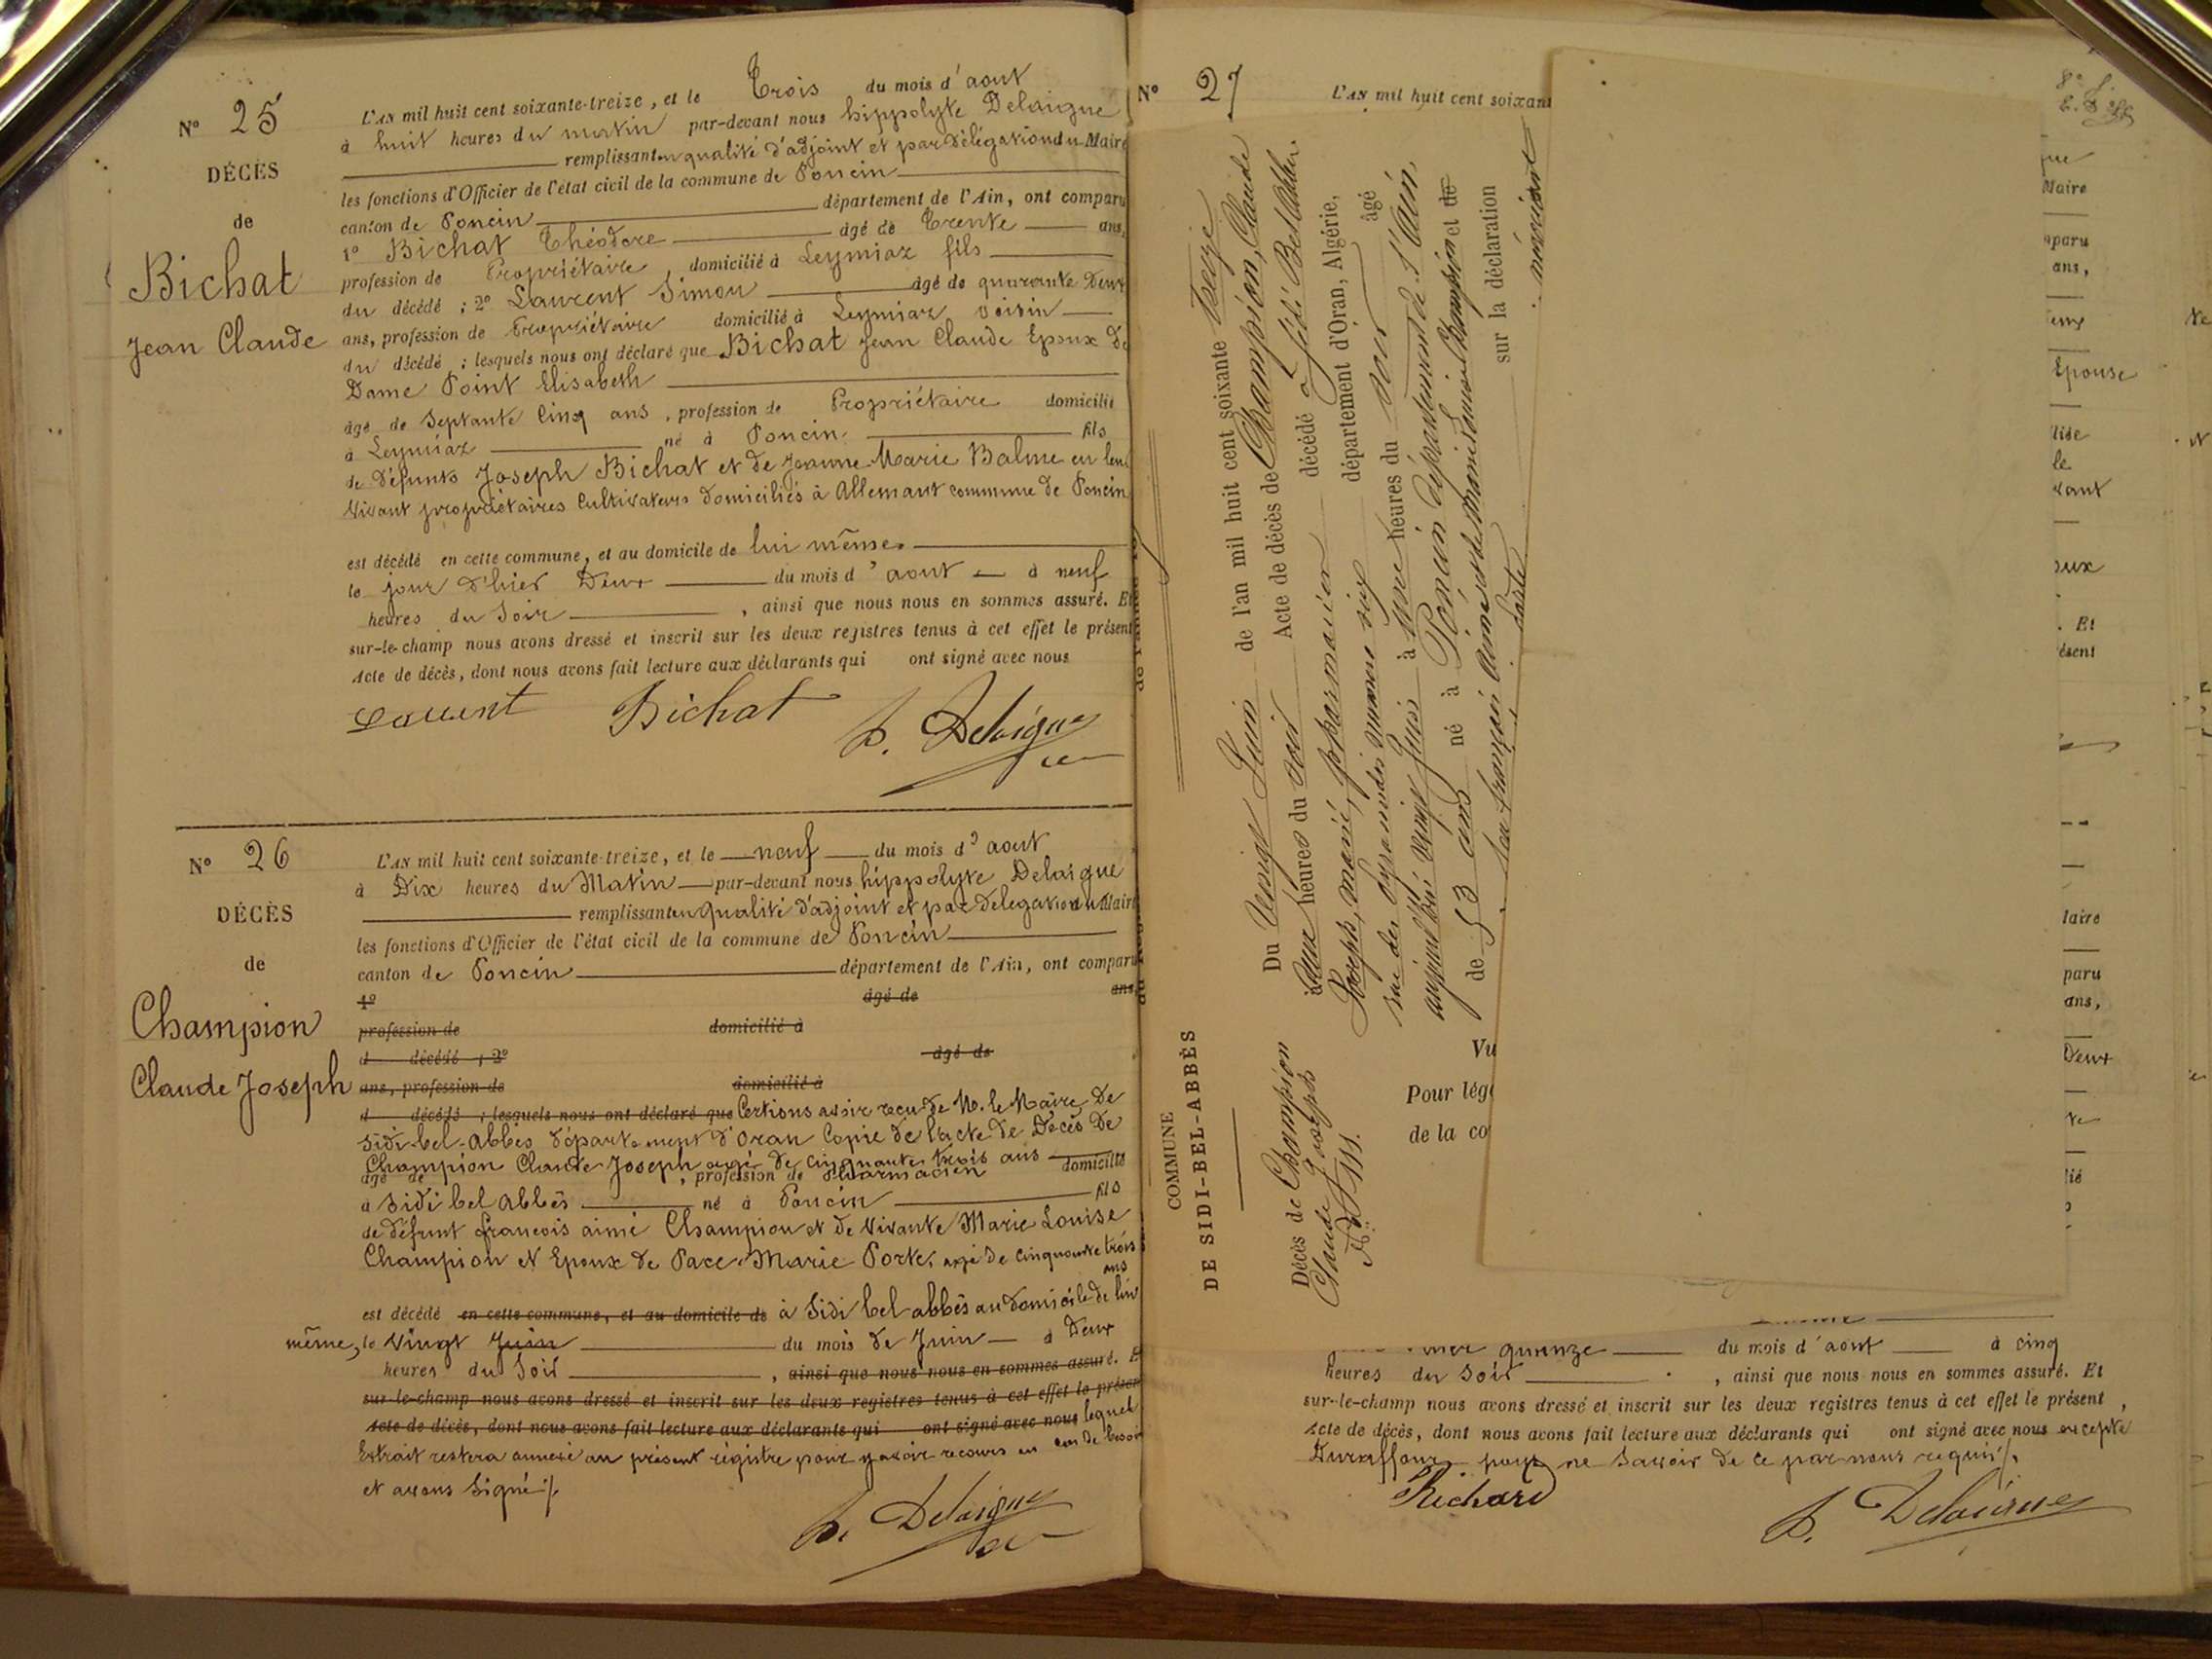 N° 25
DÉCÈS
de
Bichat
Jean Claude
L'AN mil huit cent soixante-treize, et le Trois du mois d'aout
à huit heures du matin par-devant nous hippolyte Delaigue
remplissant en qualité d'adjoint et par délégation du Maire
les fonctions d'Officier de l'état civil de la commune de Poncin
canton de Poncin département de l'Ain, ont comparu
1° Bichat Théodore âgé de Trente ans,
profession de Propriétaire, domicilié à Leymiaz fils
du décédé ; 2° Laurent Simon âgé de quarante Deux
ans, profession de Propriétaire domicilié à Leymiaz voisin
du décédé ; lesquels nous ont déclaré que Bichat Jean Claude Epoux de
Dame Point Elisabeth
âgé de Septante Cinq ans, profession de Propriétaire domicilié
à Leymiaz né à Poncin fils
de Défunts Joseph Bichat et de Jeanne Marie Balme en leur
Vivant propriétaires Cultivateurs Domiciliés à Allemant commune de Poncin
est décédé en cette commune, et au domicile de lui même
le jour d'hier Deux du mois d'aout à neuf
heures du Soir, ainsi que nous nous en sommes assuré. Et
sur-le-champ nous avons dressé et inscrit sur les deux registres tenus à cet effet le présent
Acte de décès, dont nous avons fait lecture aux déclarants qui ont signé avec nous
Laurent Bichat h. Delaigue
N° 26
DÉCÈS
de
Champion
Claude Joseph
L'AN mil huit cent soixante-treize, et le neuf du mois d'aout
à Dix heures du Matin par-devant nous hippolyte Delaigue
remplissant en qualité d'adjoint et par delegation du Maire
les fonctions d'Officier de l'état civil de la commune de Poncin
canton de Poncin département de l'Ain, ont comparu
1° âgé de ans,
profession de domicilié à
d décédé ; 2° âgé de
ans, profession de domicilié à
d décédé ; lesquels nous ont déclaré que Certions avoir reçu de M. le Maire de
Sidi-bel-abbès département d'Oran Copie de l'acte de Décès De
Champion Claude Joseph agé de cinquante trois ans
âgé de , profession de Pharmacien domicilié
à Sidi bel abbès né à Poncin fils
de défunt françois aimé Champion et de Vivante Marie Louise
Champion et Epoux de Marie Porte, agé de cinquante trois
ans
est décédé en cette commune, et au domicile de à Sidi bel abbès au domicile de lui
même, le Vingt Juin du mois de Juin à Deux
heures du Soir, ainsi que nous nous en sommes assuré. Et
sur-le-champ nous avons dressé et inscrit sur les deux registres tenus à cet effet le présent
Acte de décès, dont nous avons fait lecture aux déclarants qui ont signé avec nous lequel
Extrait restera annexé au présent régistre pour y avoir recours en cas de besoin
et avons Signé
h. Delaigue
N° 27
L'AN mil huit cent soixan
COMMUNE
DE SIDI-BEL-ABBÈS
Décès de Champion
Claude Joseph
N° 111.
Du Vingt Juin de l'an mil huit cent soixante treize
à Deux heures du soir Acte de décès de Champion, Claude
Joseph, marié, pharmacien décédé à Sidi Bel Abbès,
département d'Oran, Algérie,
rue des numéro six âgé
aujourd'hui vingt Juin à Une heures du soir
de 53 ans né à Poncin département de l'Ain,
feu françois Aimé et de Marie Louise Champion et de
sur la déclaration
Vu
Pour lég
de la co
Maire
mparu
ans,
Epouse
vant
oux
. Et
ésent
Maire
paru
ans,
Deux
quinze du mois d'aout à cinq
heures du Soir, ainsi que nous nous en sommes assuré. Et
sur-le-champ nous avons dressé et inscrit sur les deux registres tenus à cet effet le présent
Acte de décès, dont nous avons fait lecture aux déclarants qui ont signé avec nous excepté
pour ne Savoir de ce par nous requis
Richard h. Delaigue